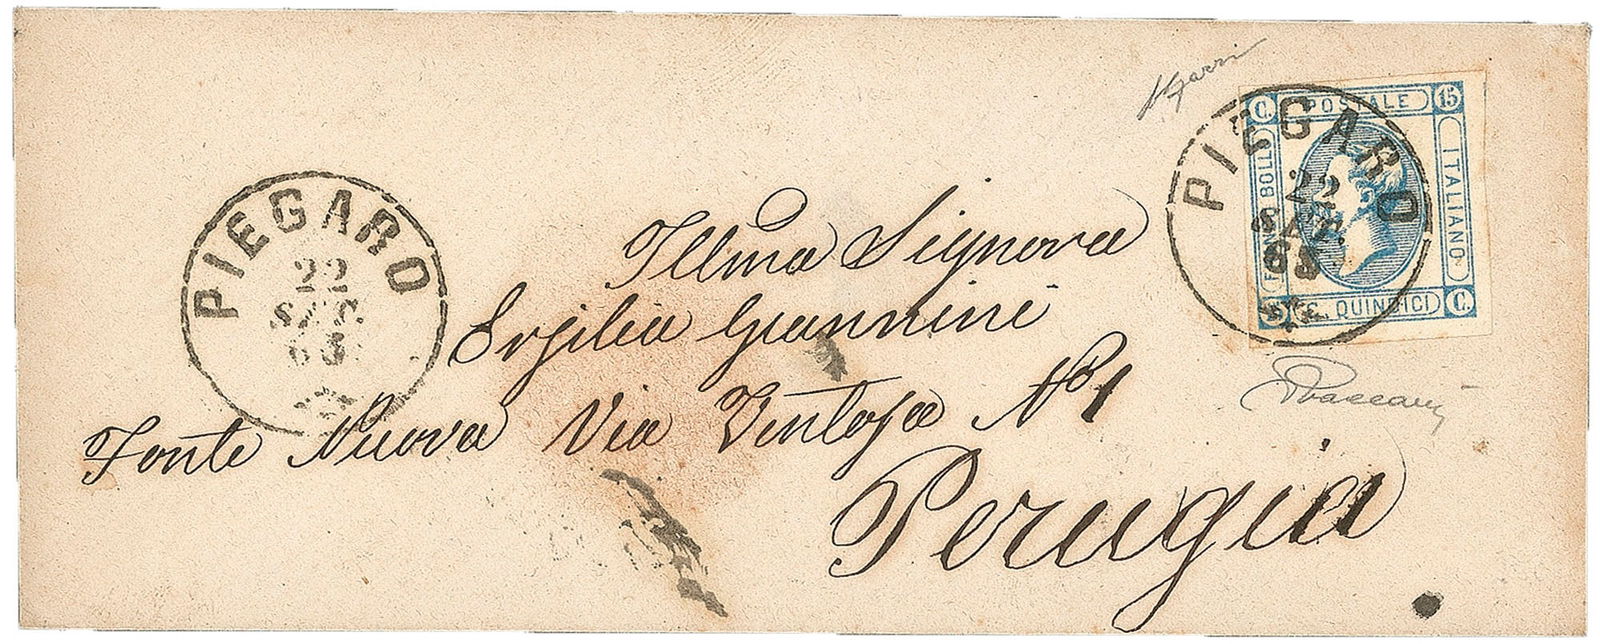 PIEGARO
22
SET.
63
PIEGARO
22
SET.
63
C. POSTALE 15
FRANCO BOLLO
ITALIANO
15 C. QUINDICI C.
Illma Signora
Ersilia Giannini
Fonte Nuova Via Ventosa No 1
Perugia